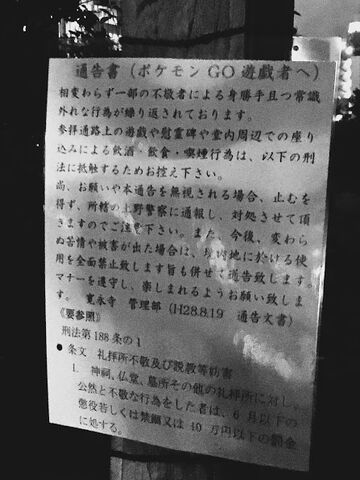 通告書（ポケモンGO遊戯者へ）
相変わらず一部の不敬者による身勝手且つ常識
外れな行為が繰り返されております。
参拝通路上の遊戯や慰霊碑や堂内周辺での座り
込みによる飲酒・飲食・喫煙行為は、以下の刑
法に抵触するためお控え下さい。
尚、お願いや本通告を無視される場合、止むを
得ず、所轄の上野警察に通報し、対処させて頂
きますのでご注意下さい。また、今後、変わら
ぬ苦情や被害が出た場合は、境内地に於ける使
用を全面禁止致します旨も併せて通告致します。
マナーを遵守し、楽しまれるようお願い致しま
す。 寛永寺 管理部（H28.8.19 通告文書）
《要参照》
刑法第188条の1
●条文 礼拝所不敬及び説教等妨害
1. 神祠、仏堂、墓所その他の礼拝所に対し、
公然と不敬な行為をした者は、6月以下の
懲役若しくは禁錮又は10万円以下の罰金
に処する。